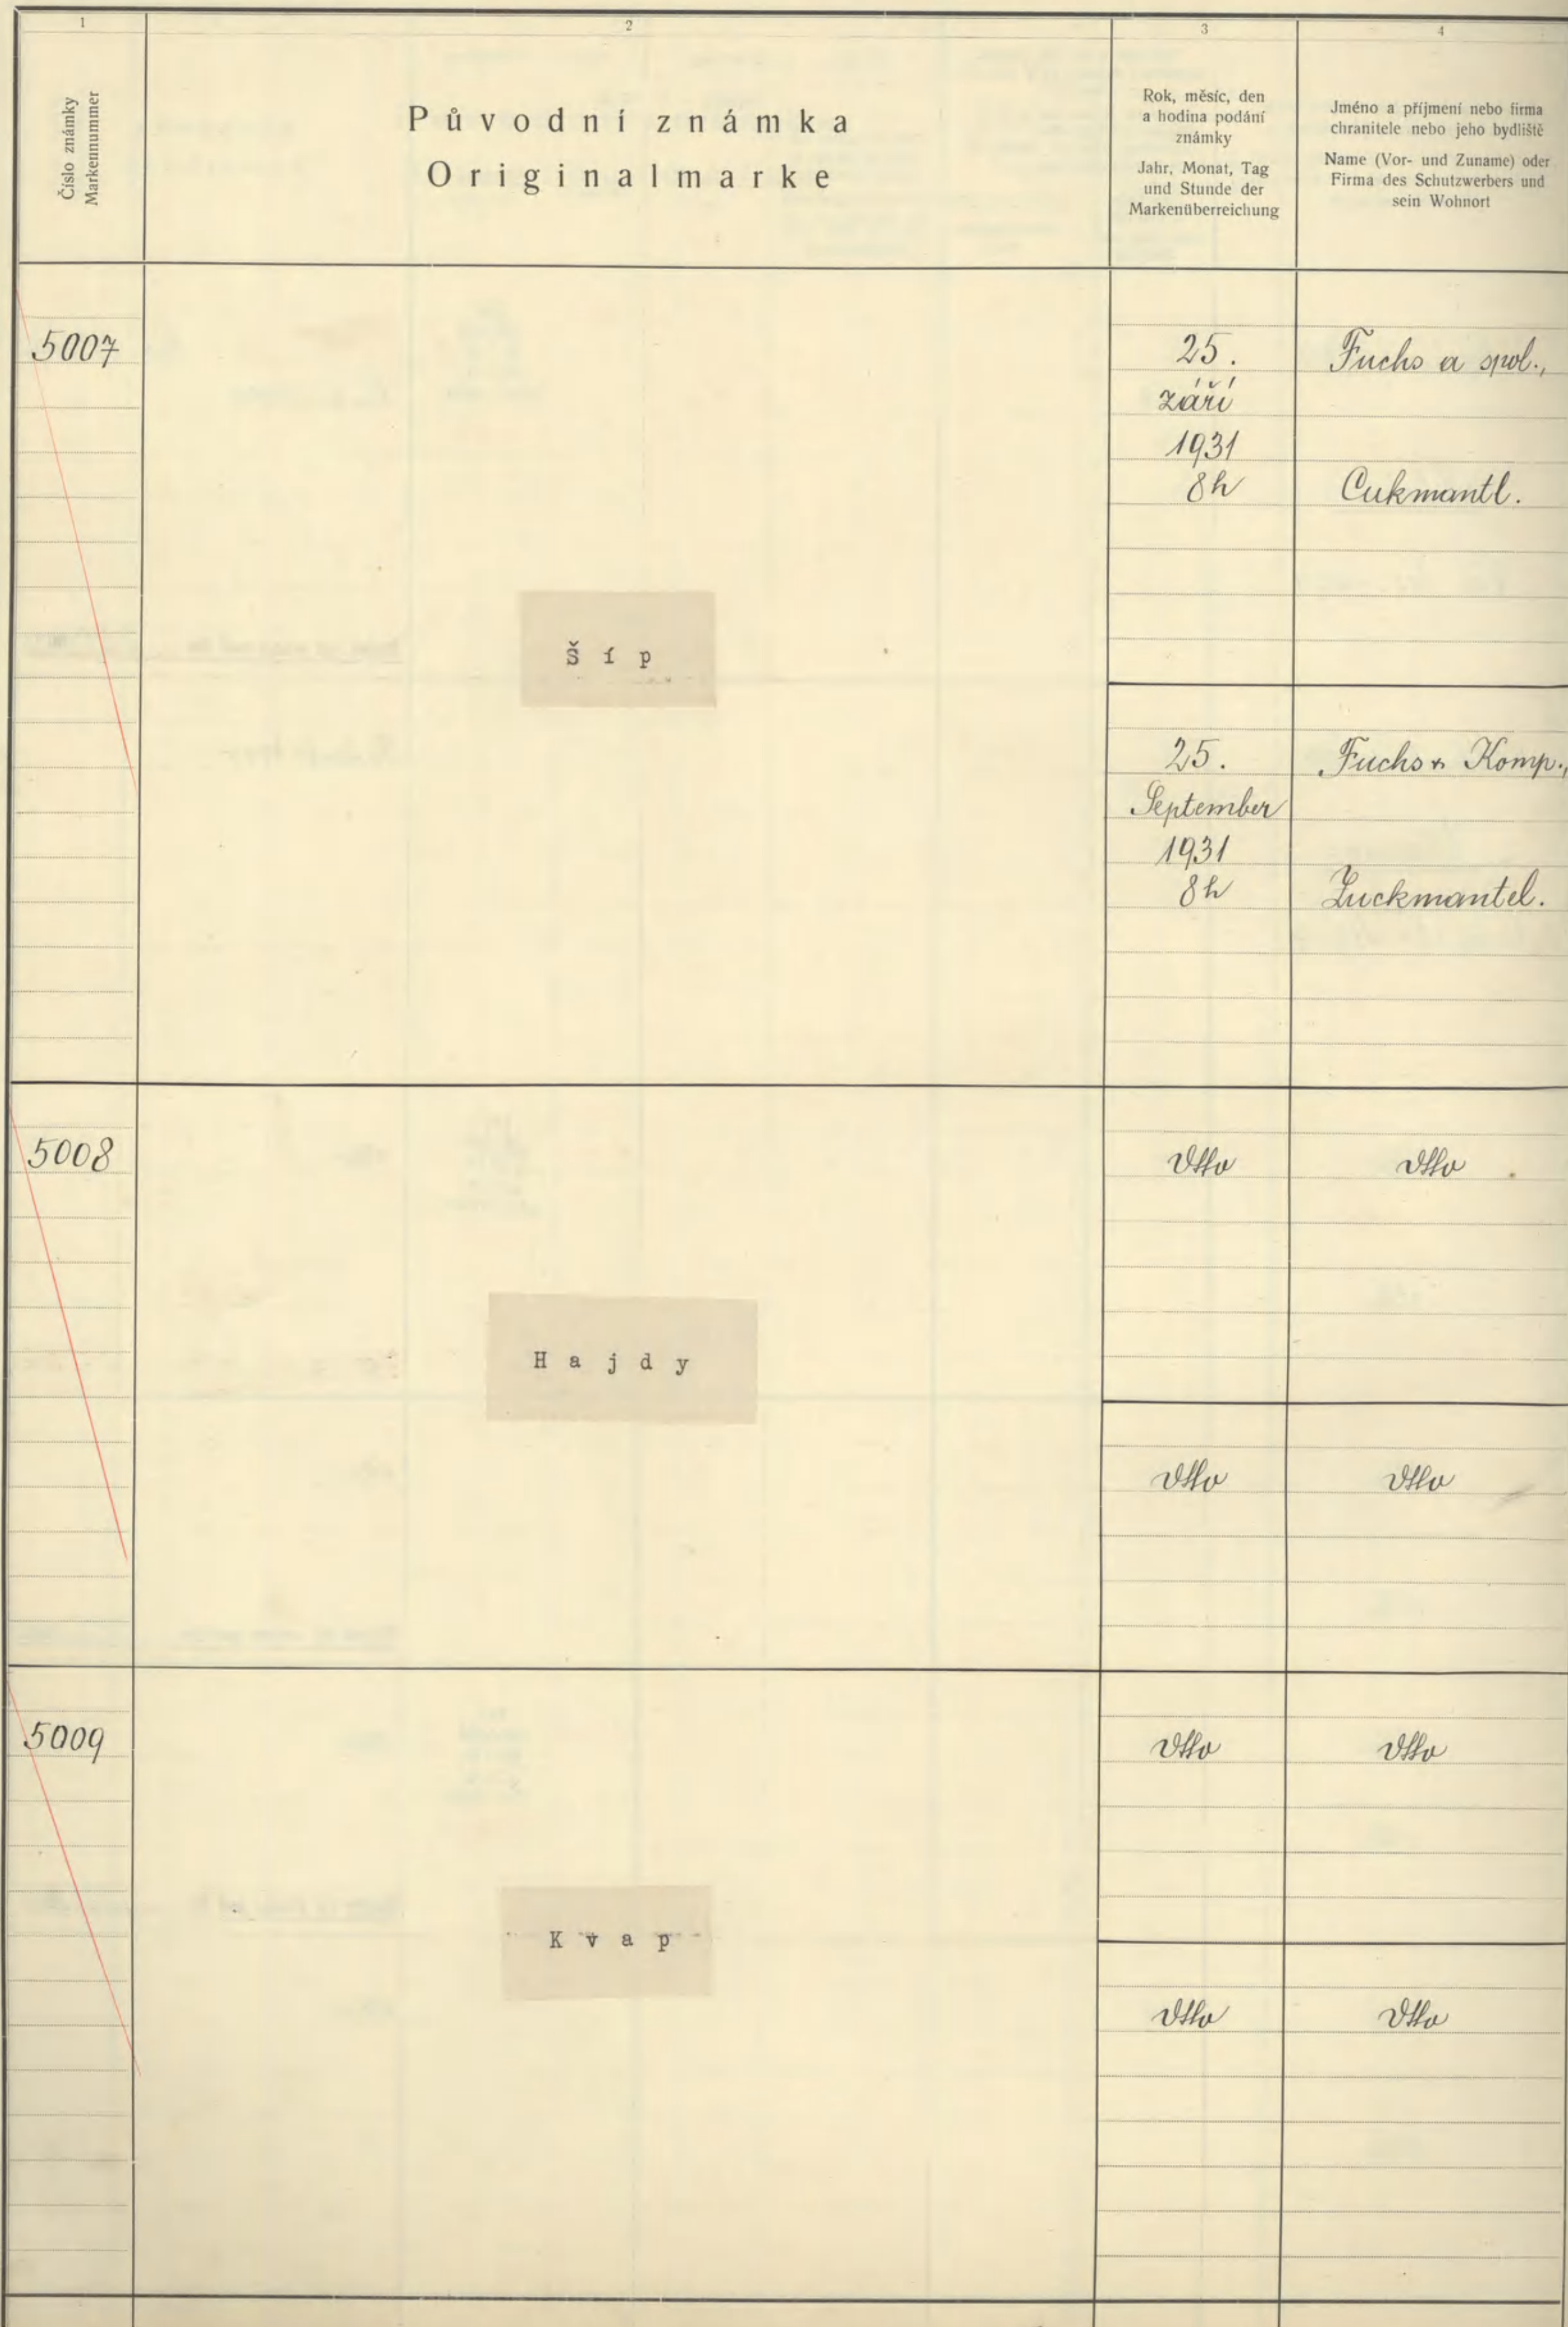 1
2
3
4
Číslo známky
Markennummer
Původní známka
Originalmarke
Rok, měsíc, den
a hodina podání
známky
Jahr, Monat, Tag
und Stunde der
Markenüberreichung
Jméno a příjmení nebo firma
chranitele nebo jeho bydliště
Name (Vor- und Zuname) oder
Firma des Schutzwerbers und
sein Wohnort
5007
Šíp
25.
září
1931
8h
Fuchs a spol.,
Cukmantl.
25.
September
1931
8h
Fuchs & Komp.,
Zuckmantel.
5008
Hajdy
dtto
dtto
dtto
dtto
5009
Kvap
dtto
dtto
dtto
dtto